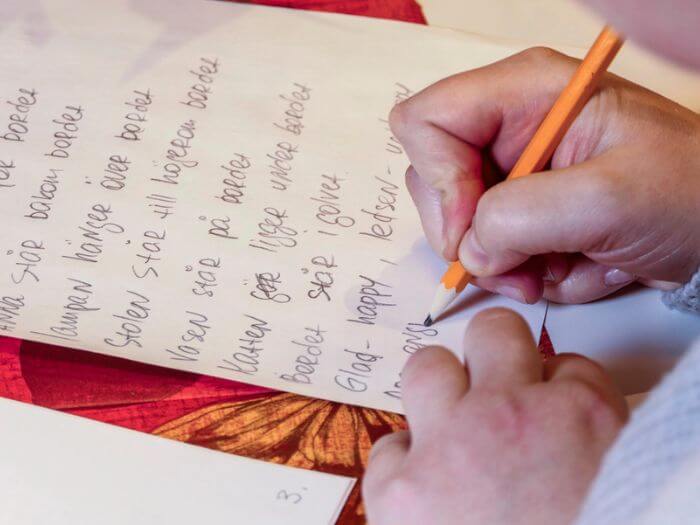 bordet
står bakom bordet
lampan hänger över bordet
Stolen står till högerom bordet
Vasen står på bordet
Katten ligger under bordet
Bordet står i golvet
Glad- happy , ledsen-
3.